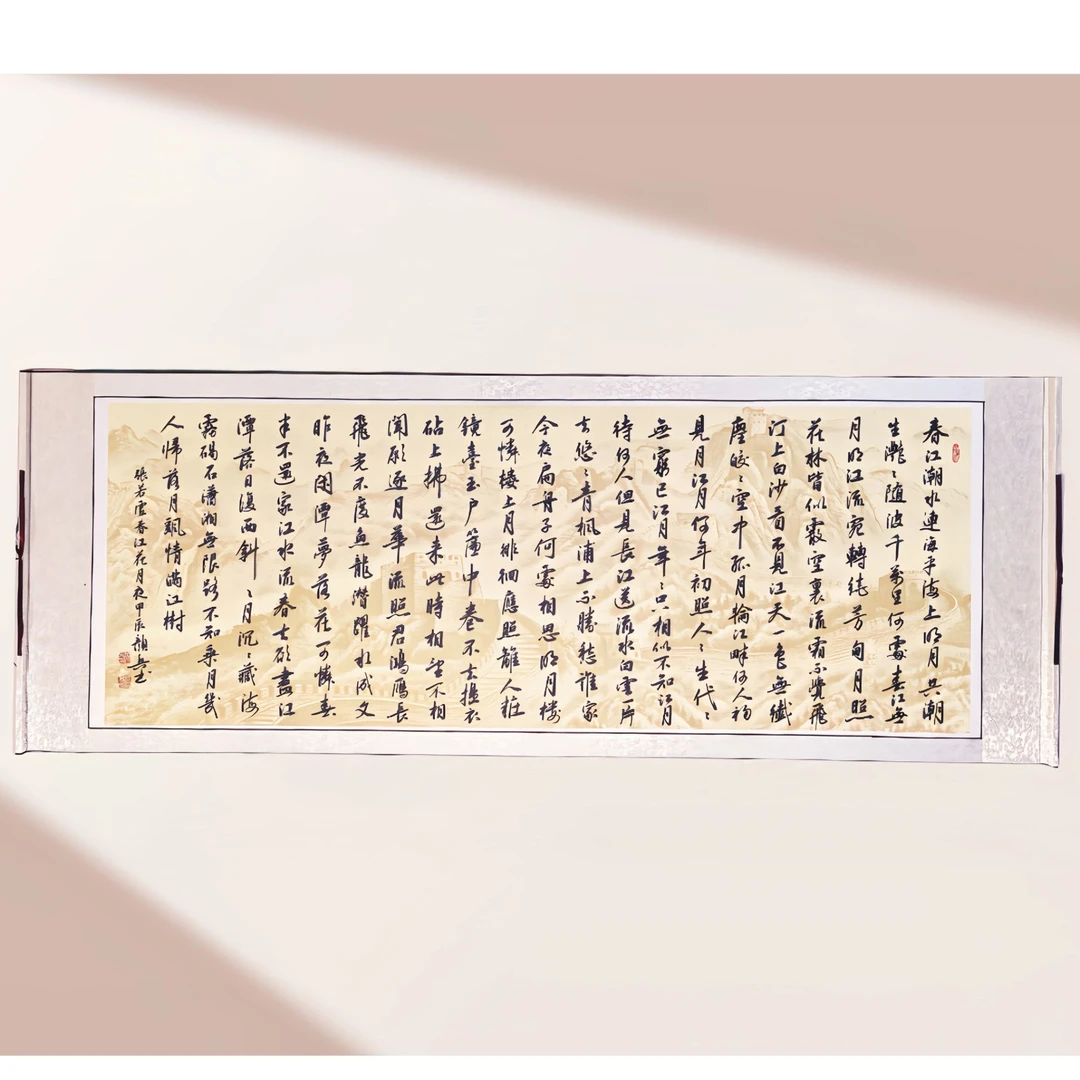 春江潮水連海平海上明月共潮
生灩〻随波千萬里何處春江無
月明江流宛轉繞芳甸月照
花林皆似霰空裏流霜不覺飛
汀上白沙看不見江天一色無纖
塵皎〻空中孤月輪江畔何人初
見月江月何年初照人〻生代〻
無窮已江月年〻只相似不知江月
待何人但見長江送流水白雲一片
去悠〻青楓浦上不勝愁誰家
今夜扁舟子何處相思明月樓
可憐樓上月徘徊應照離人粧
鏡臺玉户簾中卷不去搗衣
砧上拂還来此時相望不相
聞願逐月華流照君鴻鴈長
飛光不度魚龍潛躍水成文
昨夜閑潭夢落花可憐春
半不還家江水流春去欲盡江
潭落日復西斜〻月沉〻藏海
霧碣石瀟湘無限路不知乘月幾
人歸落月飄情滿江樹
張若虚春江花月夜甲辰書